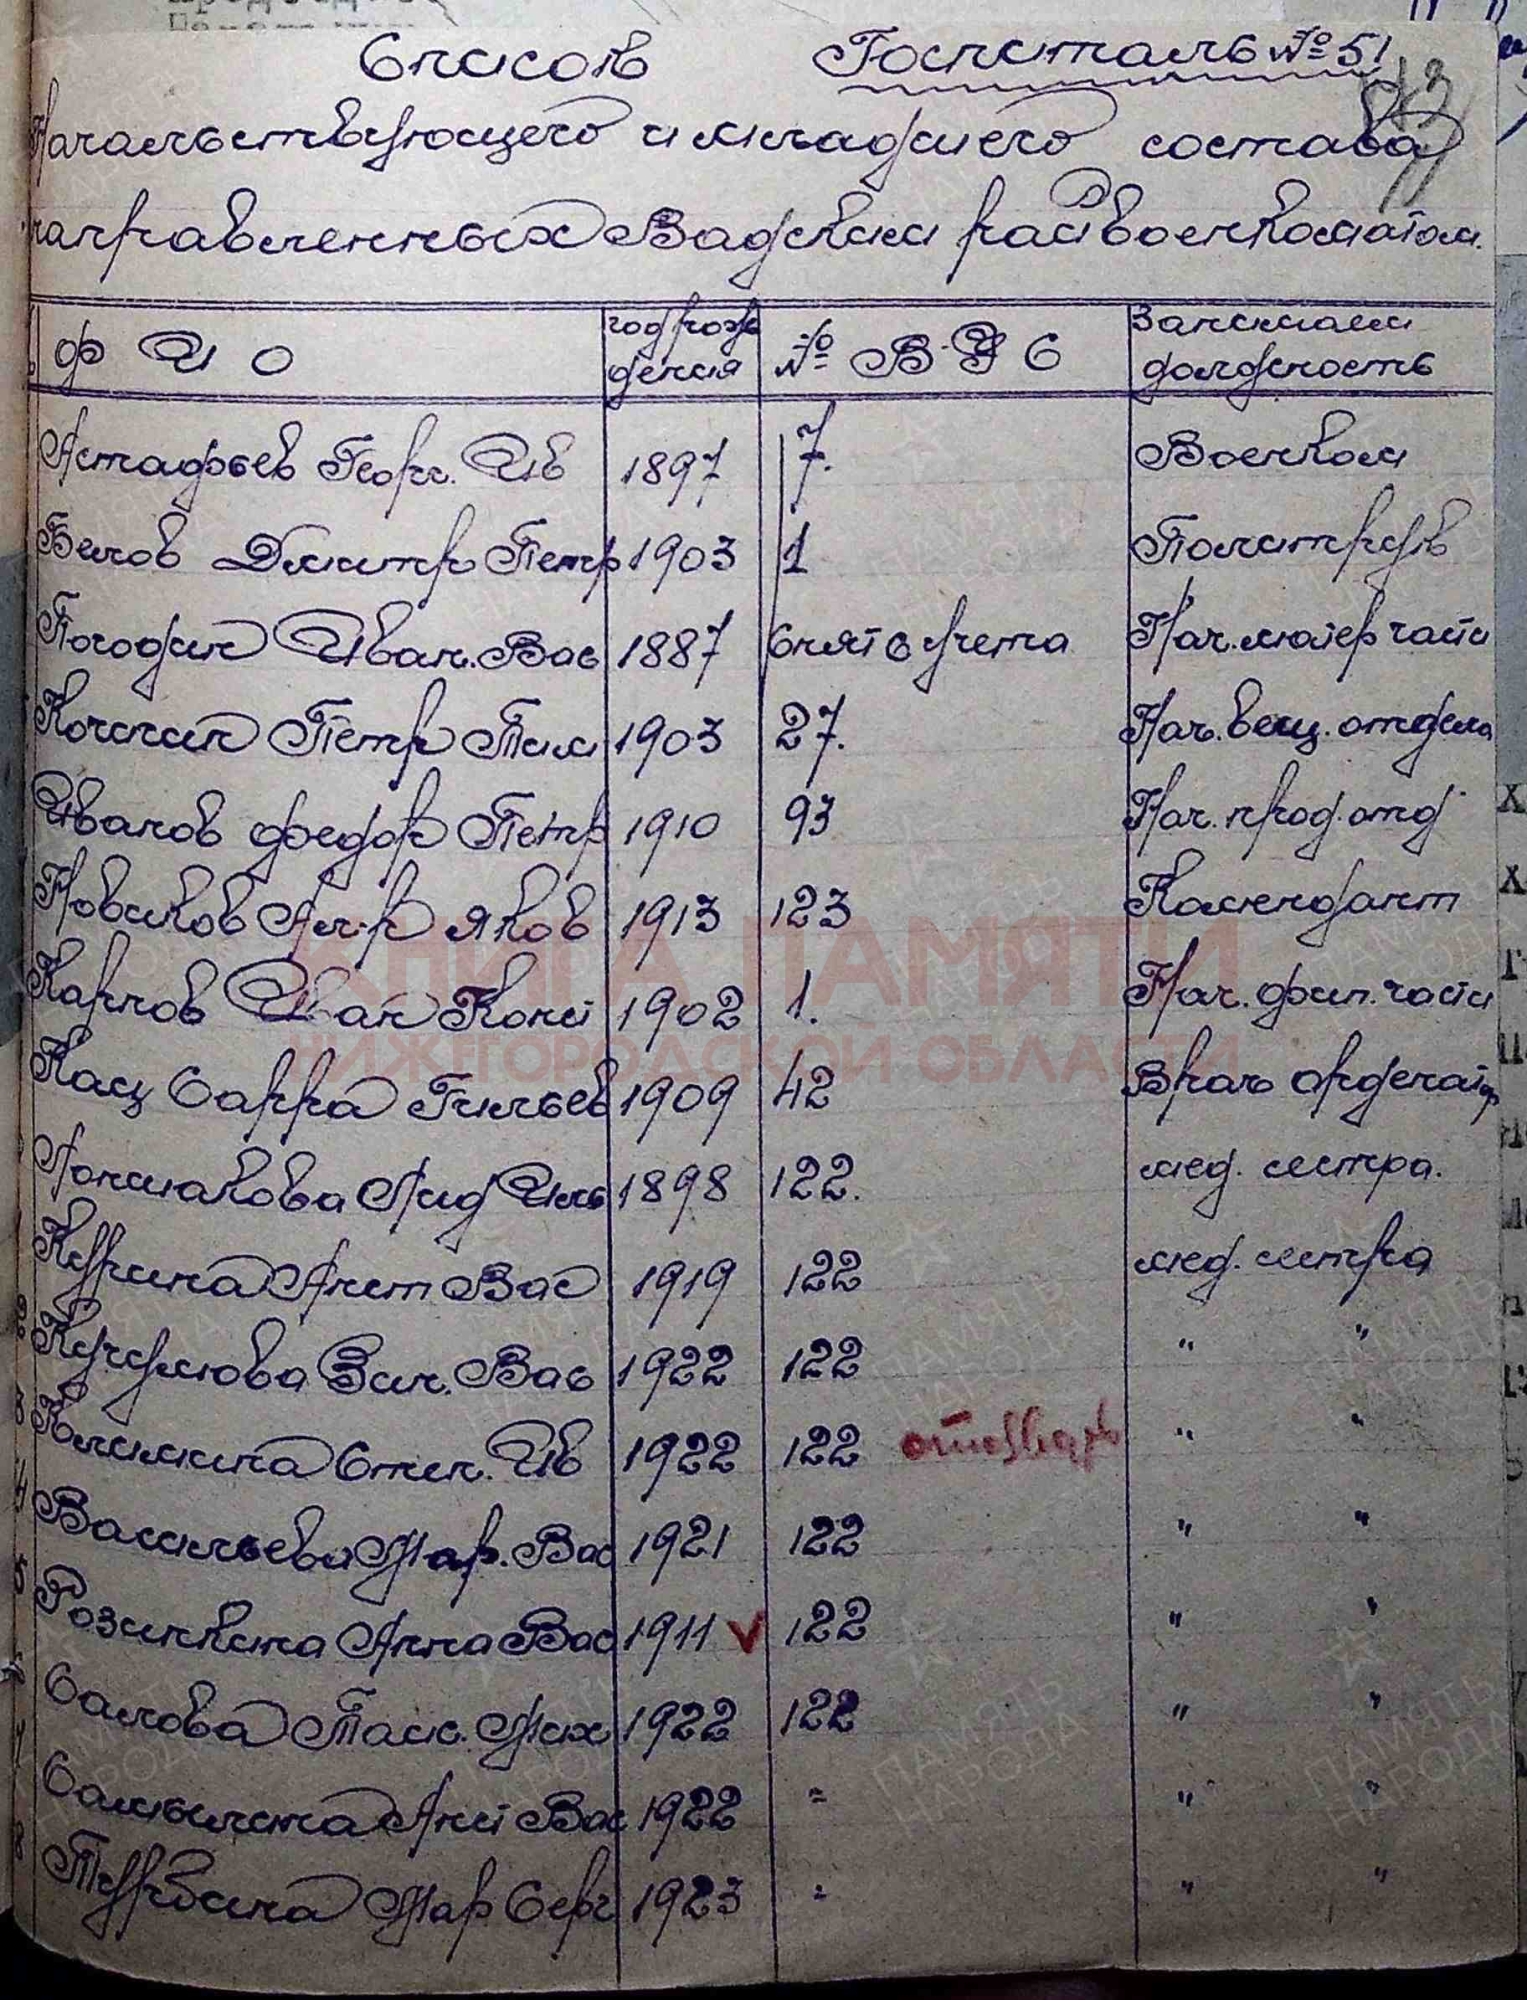 Список Госпиталь №51
Начальствующего и младшего состава
направленных Вадским райвоенкоматом.
Ф И О год рождения № ВУС Занимаем должность
Астафьев Георг. Ив 1897 7. Военком
Белов Дмитр Петр 1903 1 Политрук
Погодин Иван. Вас 1887 Снят с учета Нач. матер части
Кочнин Петр Тим 1903 27. Нач. вещ. отдела
Иванов Федор Петр 1910 93 Нач. прод. отд
Новиков Ал-р Яков 1913 123 Комендант
Карпов Иван Конст 1902 1. Нач. фин. части
Кац Сарра Гильев 1909 42 Врач ординатор
Лид Иль 1898 122. мед. сестра.
Курина Ант Вас 1919 122 мед. сестра
Зин. Вас 1922 122 " "
Климкина Степ. Ив 1922 122 " "
Васильева Мар. Вас 1921 122 " "
Розинкина Анна Вас 1911 V 122 " "
Салова Таис. Мих 1922 122 " "
Самылина Ант Вас 1922 " " "
Турбина Мар Серг 1923 " " "
КНИГА ПАМЯТИ
НИЖЕГОРОДСКОЙ ОБЛАСТИ
ПАМЯТЬ
НАРОДА